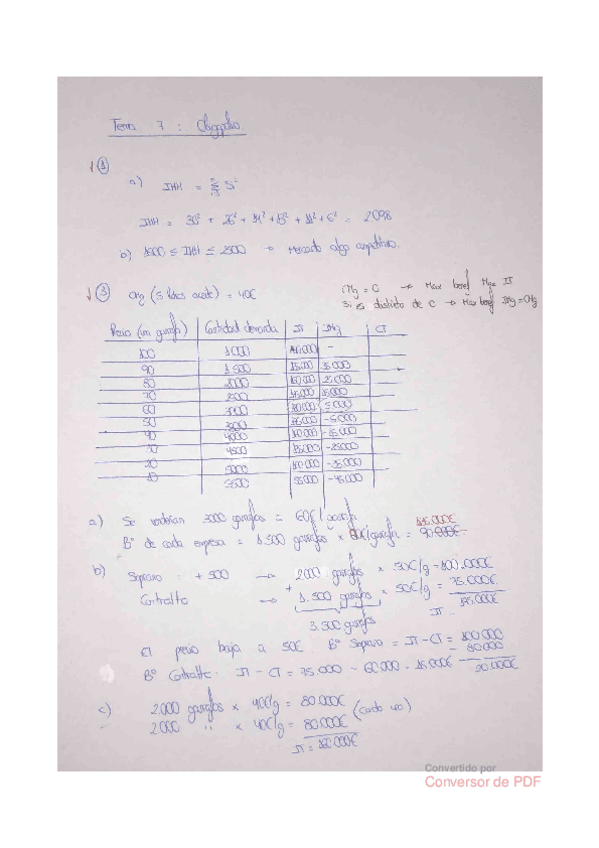 Tema 7 : Oligopolio.
1 ①
a) IHH = Σ Si²
IHH = 30² + 26² + + 13² + + 6² = 2098
b) 1800 ≤ IHH ≤ 2500 → Mercado algo competitivo.
③ CMg (5 litros aceite) = 40€
→ Max benef
Si es distinto de C → Max benef IMg = CMg
Precio (un garrafa) Cantidad demanda IT IMg CT
100 1000 100.000 -
90 1500 135.000 35.000
80 2000 160.000 25.000
70 2500
60
50 3500 -5.000
40 4000 160.000 -15.000
30 4500 135.000 -25.000
20 5000 100.000 -35.000
10 5500 55.000 -45.000
a) Se venderían 3000 garrafas = 60€/garrafa
Bº de cada empresa = 1.500 garrafas × = 90.000€
b) Soprano : + 500 → 2000 garrafas × 50€/g = 100.000€
Contraltto → + 1.500 garrafas × 50€/g = 75.000€
3.500 garrafas IT
El precio baja a 50€. Bº Soprano = IT - CT = 100.000
- 80.000
Bº Contraltto. IT - CT = 75.000 - 60.000 = 15.000€ 20.000€
c) 2.000 garrafas × 40€/g = 80.000€ (cada uno)
2.000 " × 40€/g = 80.000€
IT = 160.000€
Convertido por
Conversor de PDF